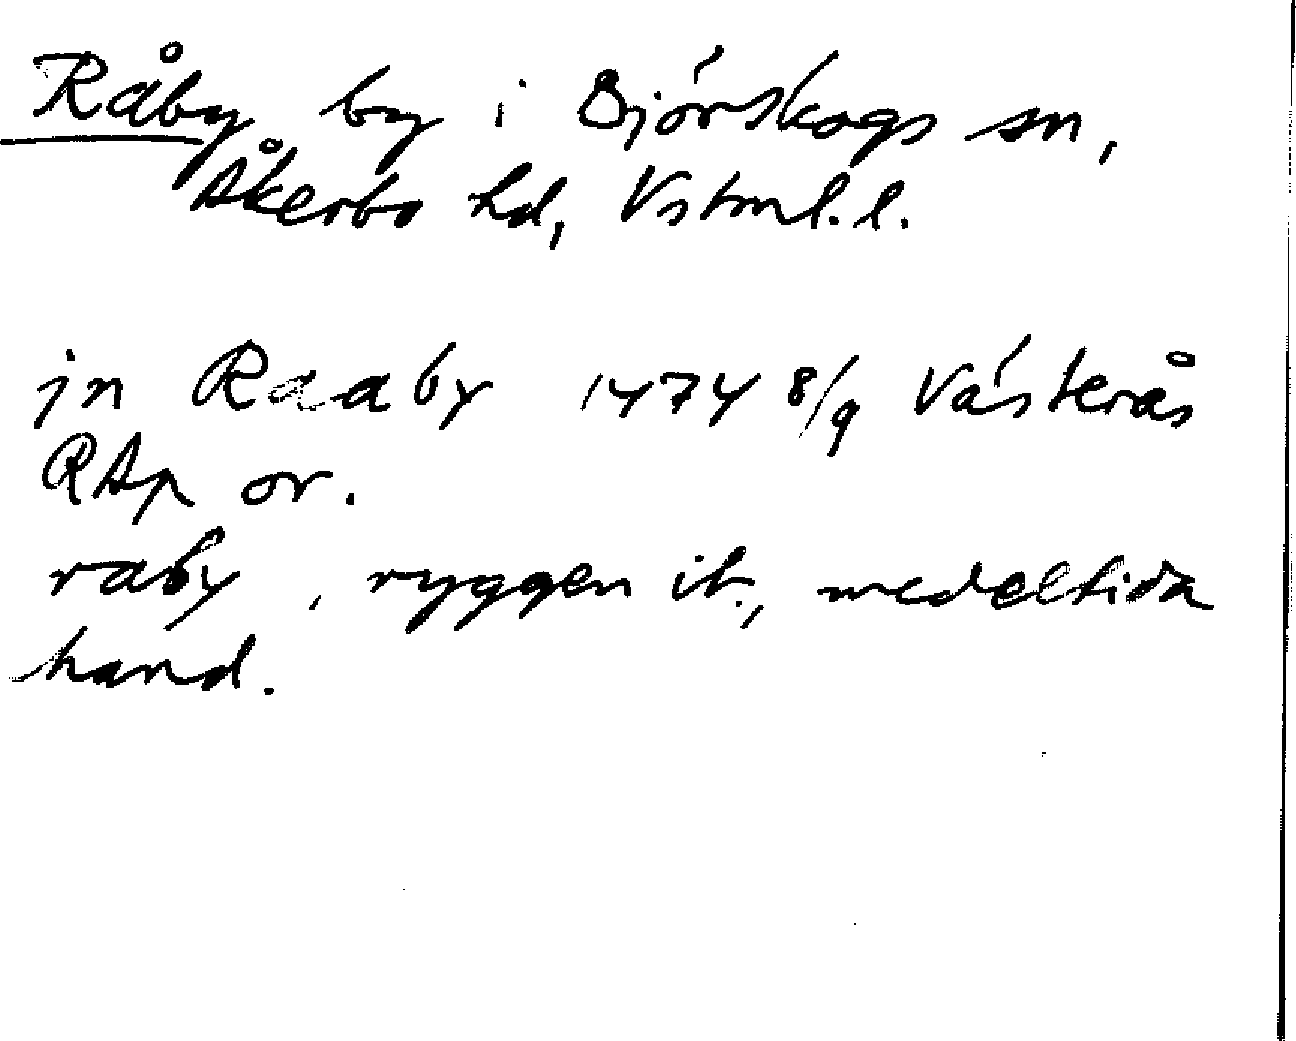 Råby by i Björskogs sn,
Åkerbo hd, Vstml. l.
in Raaby 1474 8/9 Västerås
RAp or.
raby, ryggen ib., medeltida
hand.